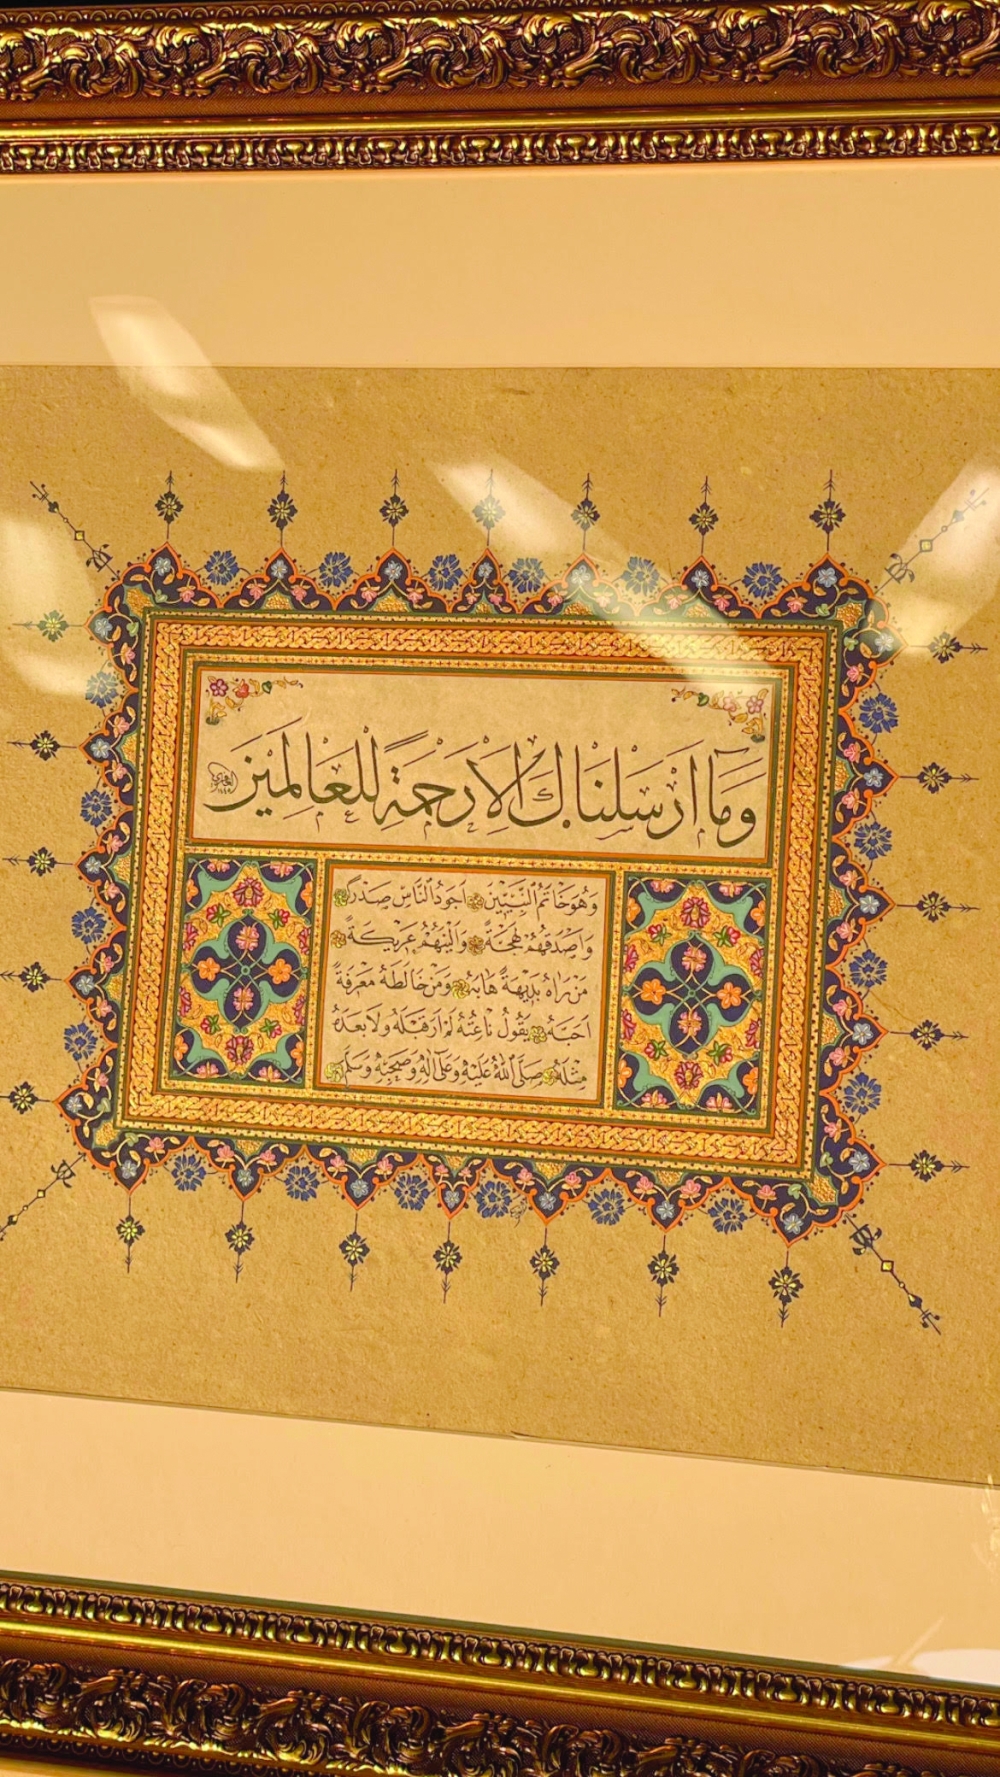 وَمَا اَرْسَلْنَاكَ اِلَّا رَحْمَةً لِلْعَالَمِينَ
وَهُوَ خَاتَمُ النَّبِيِّينَ اَجْوَدُ النَّاسِ صَدْرًا
وَاَصْدَقُهُمْ لَهْجَةً وَاَلْيَنُهُمْ عَرِيكَةً
مَنْ رَاٰهُ بَدِيهَةً هَابَهُ وَمَنْ خَالَطَهُ مَعْرِفَةً
اَحَبَّهُ يَقُولُ نَاعِتُهُ لَمْ اَرَ قَبْلَهُ وَلَا بَعْدَهُ
مِثْلَهُ صَلَّى اللهُ عَلَيْهِ وَعَلَى اٰلِهِ وَصَحْبِهِ وَسَلَّمَ